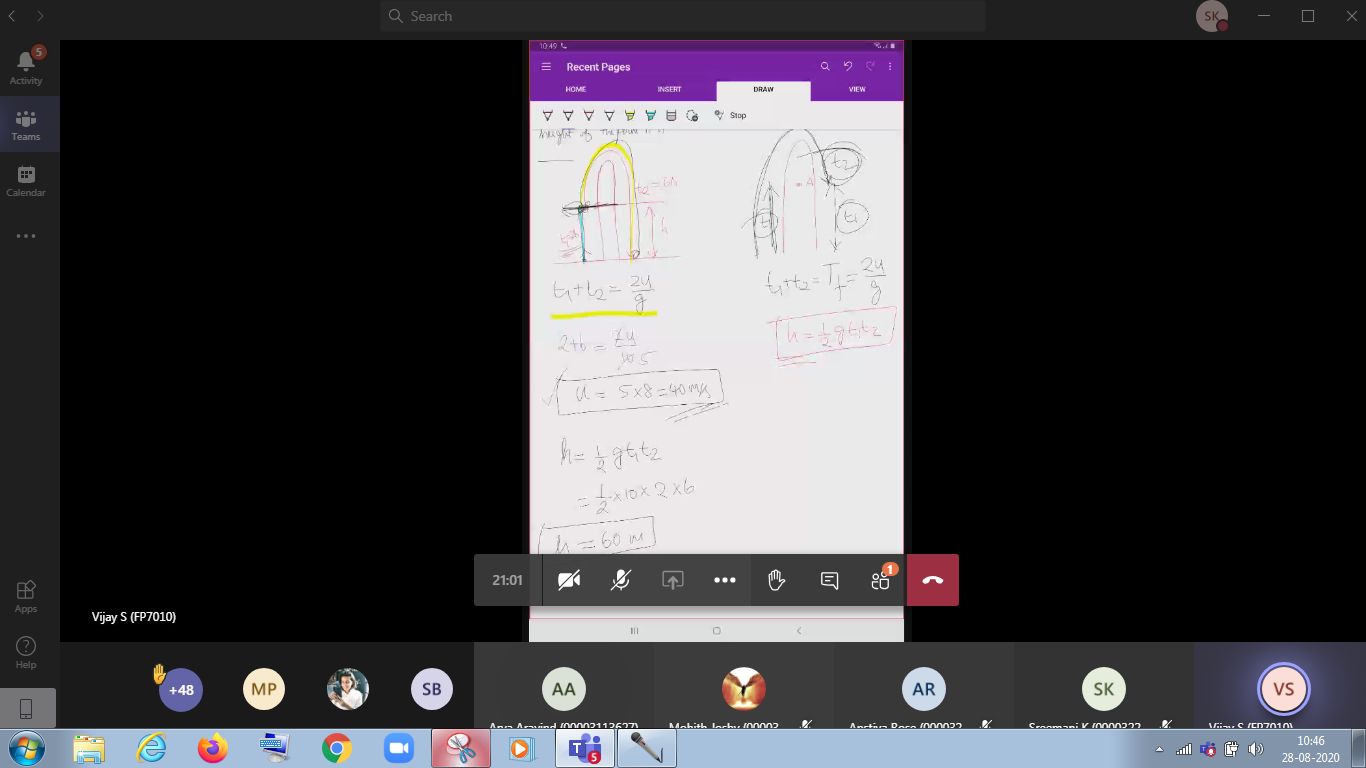 Search
SK
5
Activity
Teams
Calendar
Apps
Help
10:49
Recent Pages
HOME INSERT DRAW VIEW
Stop
height of the point
t2=6s
h
t1+t2 = 2u/g
2+6 = 2u/10 5
u = 5×8=40m/s
h = 1/2 gt1t2
= 1/2 ×10×2×6
h = 60 m
t2
A
t1
t1
t1+t2 = Tf = 2u/g
h = 1/2 gt1t2
21:01
1
Vijay S (FP7010)
+48
MP
SB
AA
AR
SK
VS
Arya Aravind (00003113627)
Mohith Joshy (00003
Anstiya Rose (0000322
Sreemani K (0000322
Vijay S (FP7010)
5
10:46
28-08-2020